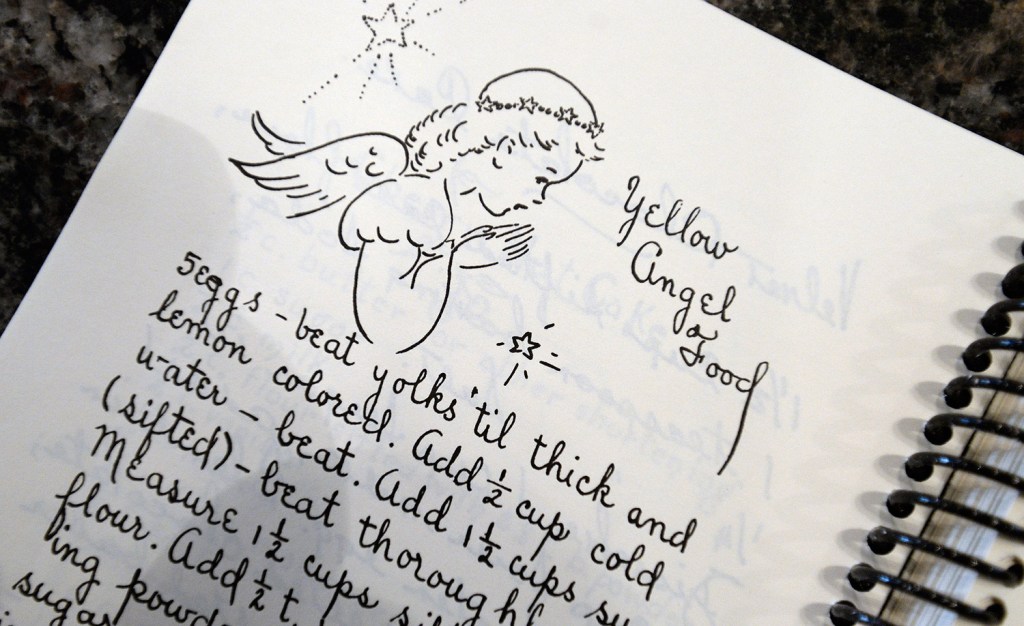 Yellow
Angel
Food
5 eggs - beat yolks 'til thick and
lemon colored. Add ½ cup cold
water - beat. Add 1½ cups su
(sifted) - beat thorough
Measure 1½ cups si
flour. Add ½ t
ing powd
sugar